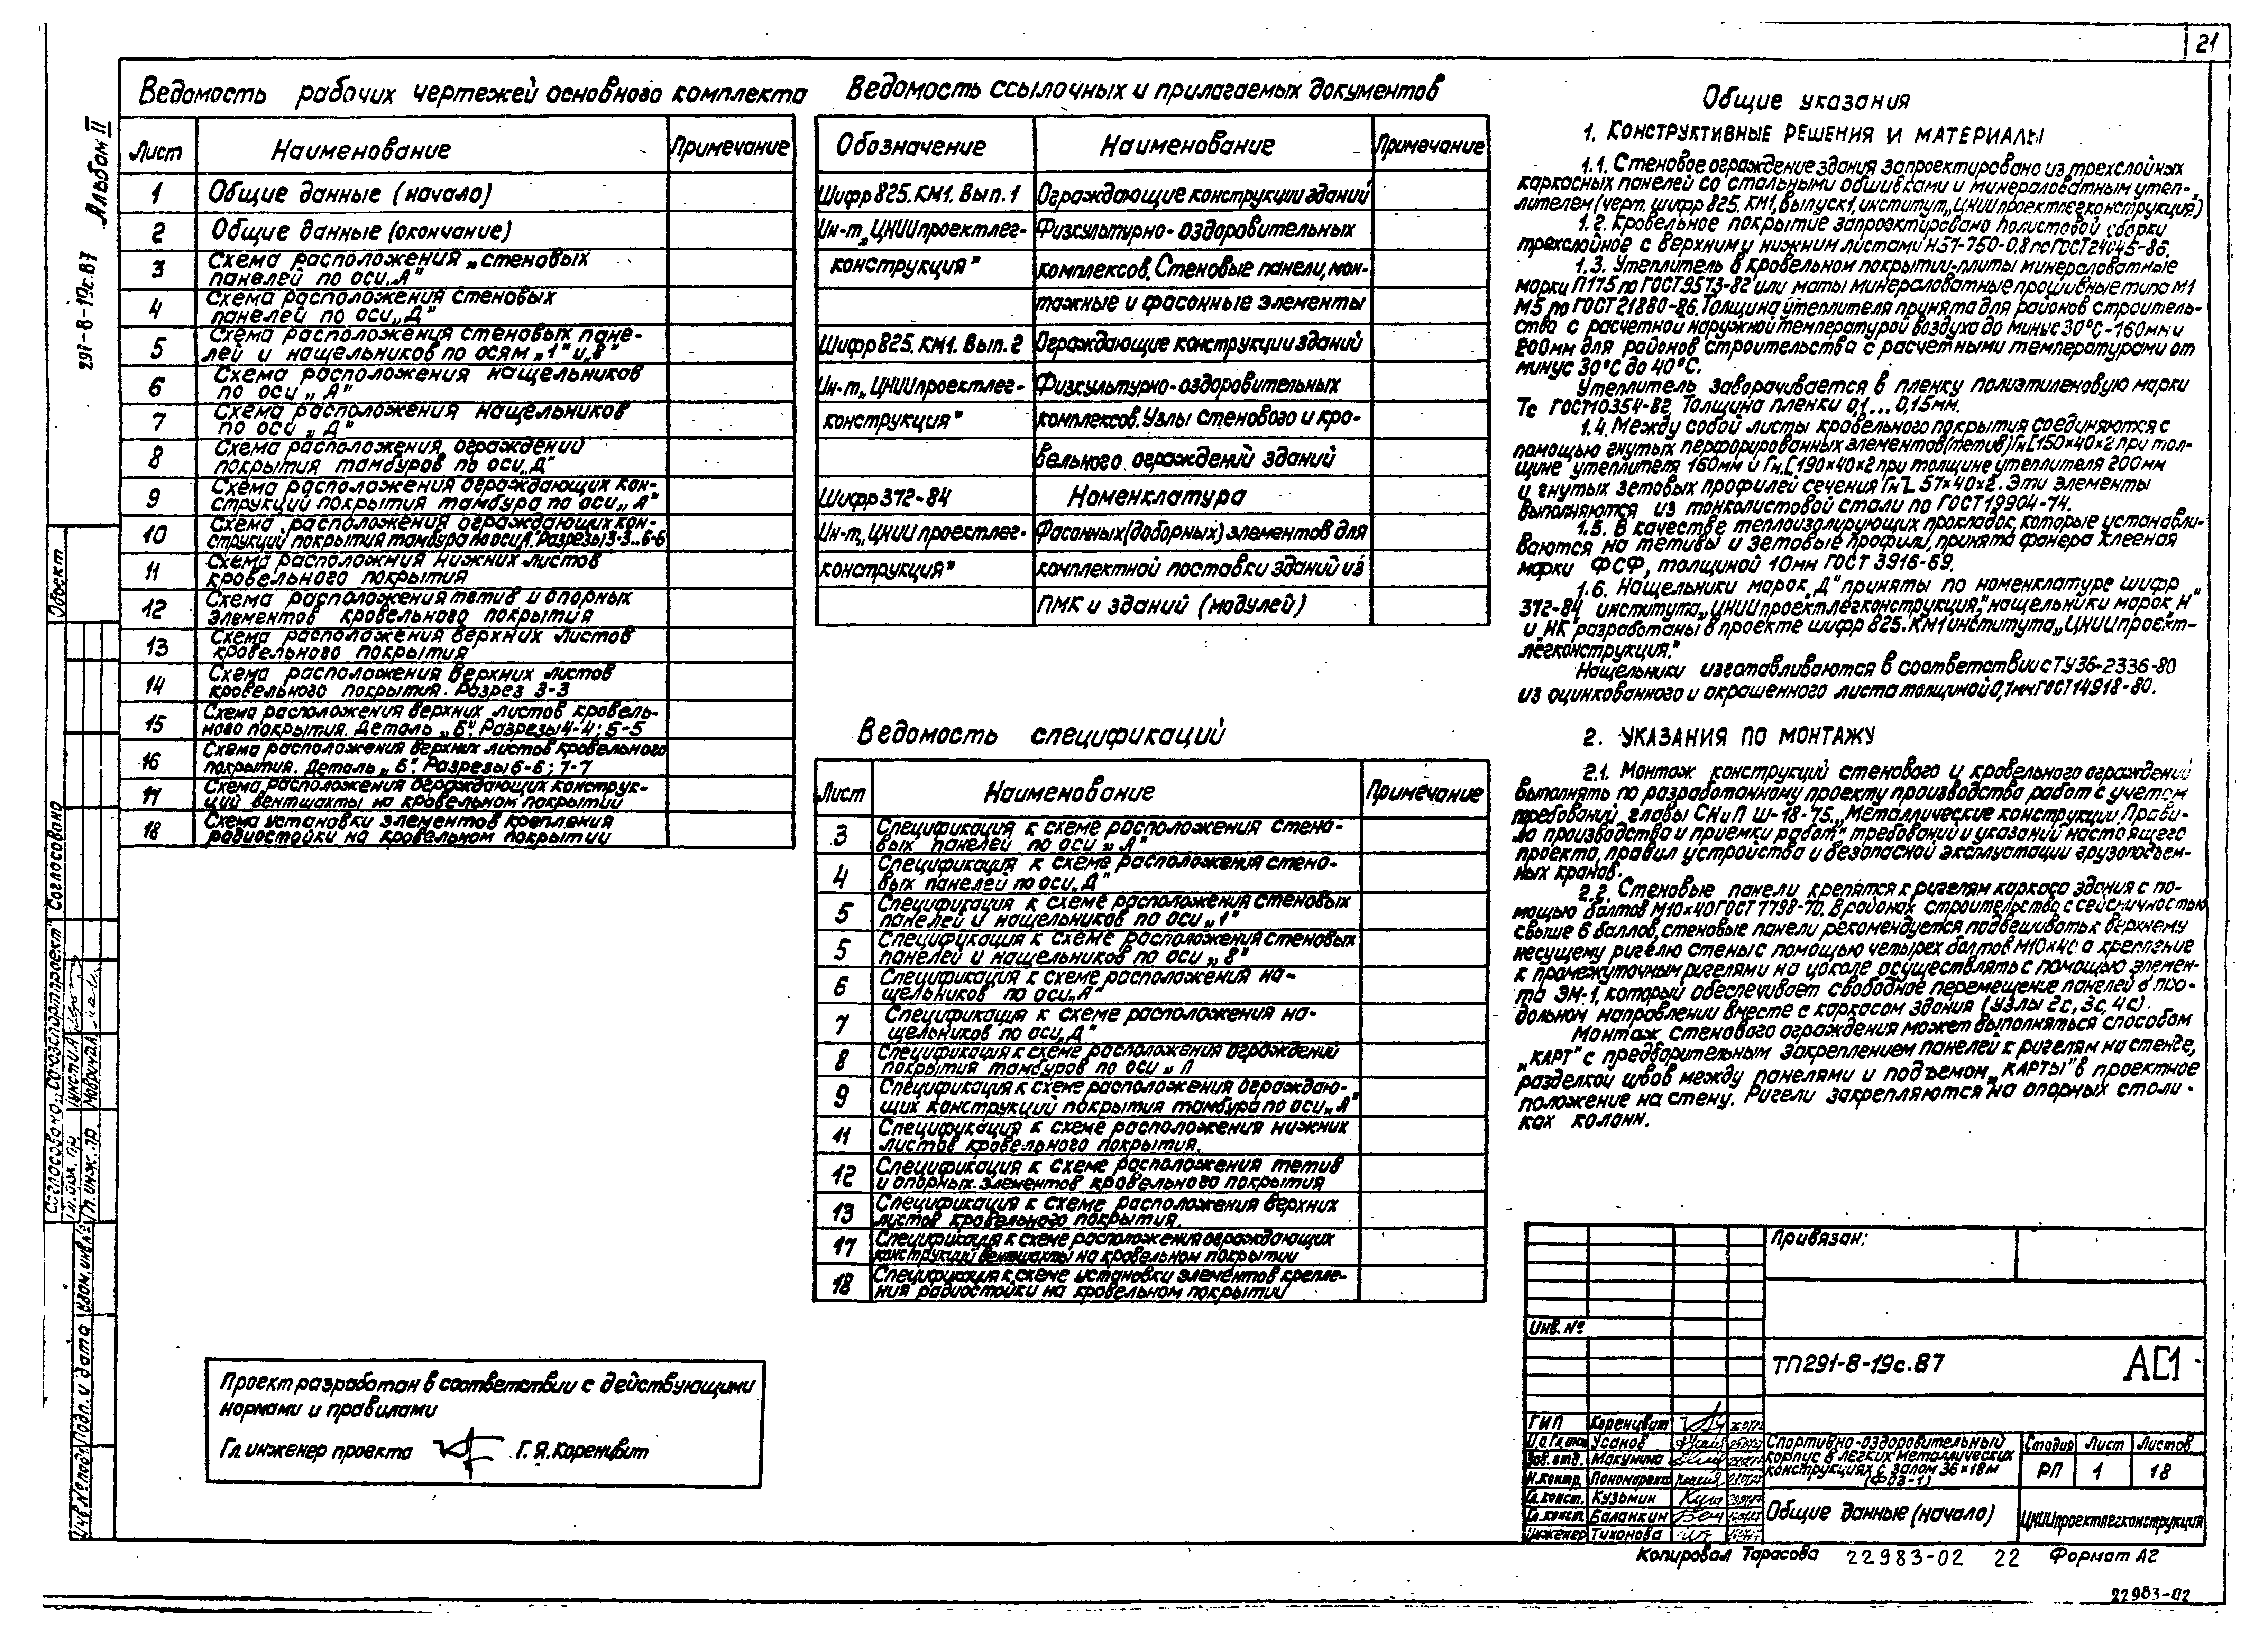 21
Альбом II
291-8-19с.87
Ведомость рабочих чертежей основного комплекта
Лист Наименование Примечание
1 Общие данные (начало)
2 Общие данные (окончание)
3 Схема расположения „стеновых
панелей по оси„А"
4 Схема расположения стеновых
панелей по оси„Д"
5 Схема расположения стеновых пане-
лей и нащельников по осям „1" и„8"
6 Схема расположения нащельников
по оси „А"
7 Схема расположения нащельников
по оси „Д"
8 Схема расположения ограждений
покрытия тамбуров по оси„Д"
9 Схема расположения ограждающих кон-
струкций покрытия тамбура по оси„А"
10 Схема расположения ограждающих кон-
струкций покрытия тамбура по оси А. Разрезы 3-3..6-6
11 Схема расположния нижних листов
кровельного покрытия
12 Схема расположения тетив и опорных
элементов кровельного покрытия
13 Схема расположения верхних листов
кровельного покрытия
14 Схема расположения верхних листов
кровельного покрытия. Разрез 3-3
15 Схема расположения верхних листов кровель-
ного покрытия. Деталь „Б". Разрезы 4-4; 5-5
16 Схема расположения верхних листов кровельного
покрытия. Деталь „Б". Разрезы 6-6; 7-7
17 Схема расположения ограждающих конструк-
ций вентшахты на кровельном покрытии
18 Схема установки элементов крепления
радиостойки на кровельном покрытии
Проект разработан в соответствии с действующими
нормами и правилами
Гл. инженер проекта Г. Я. Коренцвит
Ведомость ссылочных и прилагаемых документов
Обозначение Наименование Примечание
Шифр 825. КМ1. Вып. 1 Ограждающие конструкции зданий
Ин-т„ЦНИИпроектлег- Физкультурно-оздоровительных
конструкция" комплексов. Стеновые панели, мон-
тажные и фасонные элементы
Шифр 825. КМ1. Вып. 2 Ограждающие конструкции зданий
Ин-т„ЦНИИпроектлег- Физкультурно-оздоровительных
конструкция" комплексов. Узлы стенового и кро-
вельного ограждений зданий
Шифр 372-84 Номенклатура
Ин-т„ЦНИИпроектлег- Фасонных(доборных) элементов для
конструкция" комплектной поставки зданий из
ПМК и зданий (модулей)
Ведомость спецификаций
Лист Наименование Примечание
3 Спецификация к схеме расположения стено-
вых панелей по оси „А"
4 Спецификация к схеме расположения стено-
вых панелей по оси„Д"
5 Спецификация к схеме расположения стеновых
панелей и нащельников по оси „1"
5 Спецификация к схеме расположения стеновых
панелей и нащельников по оси „8"
6 Спецификация к схеме расположения на-
щельников по оси„А"
7 Спецификация к схеме расположения на-
щельников по оси„Д"
8 Спецификация к схеме расположения ограждений
покрытия тамбуров по оси „Д
9 Спецификация к схеме расположения ограждаю-
щих конструкций покрытия тамбура по оси„А"
11 Спецификация к схеме расположения нижних
листов кровельного покрытия.
12 Спецификация к схеме расположения тетив
и опорных элементов кровельного покрытия
13 Спецификация к схеме расположения верхних
листов кровельного покрытия.
17 Спецификация к схеме расположения ограждающих
конструкций вентшахты на кровельном покрытии
18 Спецификация к схеме установки элементов крепле-
ния радиостойки на кровельном покрытии
Общие указания
1. КОНСТРУКТИВНЫЕ РЕШЕНИЯ И МАТЕРИАЛЫ
1.1. Стеновое ограждение здания запроектировано из трехслойных
каркасных панелей со стальными обшивками и минераловатным утеп-
лителем (черт. шифр 825. КМ1, выпуск 1, институт„ЦНИИпроектлегконструкция")
1.2. Кровельное покрытие запроектировано полистовой сборки
трехслойное с верхним и нижним листами Н57-750-0,8 по ГОСТ 24045-86.
1.3. Утеплитель в кровельном покрытии-плиты минераловатные
марки П175 по ГОСТ 9573-82 или маты минераловатные прошивные типа М1
М5 по ГОСТ 21880-86. Толщина утеплителя принята для районов строитель-
ства с расчетной наружной температурой воздуха до минус 30°С-160мм и
200мм для районов строительства с расчетными температурами от
минус 30°С до 40°С.
Утеплитель заворачивается в пленку полиэтиленовую марки
Тс ГОСТ 10354-82. Толщина пленки 0,1...0,15мм.
1.4. Между собой листы кровельного покрытия соединяются с
помощью гнутых перфорированных элементов(тетив) Гн.[150×40×2 при тол-
щине утеплителя 160мм и Гн.[190×40×2 при толщине утеплителя 200мм
и гнутых зетовых профилей сечения Гн Z 57×40×2. Эти элементы
выполняются из тонколистовой стали по ГОСТ 19904-74.
1.5. В качестве теплоизолирующих прокладок, которые устанавли-
ваются на тетивы и зетовые профили, принята фанера клееная
марки ФСФ, толщиной 10мм ГОСТ 3916-69.
1.6. Нащельники марок„Д" приняты по номенклатуре шифр
372-84 института„ЦНИИпроектлегконструкция," нащельники марок„Н"
и„НК" разработаны в проекте шифр 825.КМ1 института„ЦНИИпроект-
легконструкция."
Нащельники изготавливаются в соответствии с ТУ36-2336-80
из оцинкованного и окрашенного листа толщиной 0,7мм ГОСТ 14918-80.
2. УКАЗАНИЯ ПО МОНТАЖУ
2.1. Монтаж конструкций стенового и кровельного ограждений
выполнять по разработанному проекту производства работ с учетом
требований главы СНиП Ш-18-75„Металлические конструкции. Прави-
ла производства и приемки работ," требований и указаний настоящего
проекта, правил устройства и безопасной эксплуатации грузоподъем-
ных кранов.
2.2. Стеновые панели крепятся к ригелям каркаса здания с по-
мощью болтов М10×40 ГОСТ 7798-70. В районах строительства с сейсмичностью
свыше 6 баллов, стеновые панели рекомендуется подвешивать к верхнему
несущему ригелю стены с помощью четырех болтов М10×40, а крепление
к промежуточным ригелям и на цоколе осуществлять с помощью элемен-
та ЭМ-1, который обеспечивает свободное перемещение панелей в про-
дольном направлении вместе с каркасом здания (узлы 2с, 3с, 4с).
Монтаж стенового ограждения может выполняться способом
„КАРТ" с предварительным закреплением панелей к ригелям на стенде,
разделкой швов между панелями и подъемом „КАРТЫ" в проектное
положение на стену. Ригели закрепляются на опорных столи-
ках колонн.
Привязан:
Инв. №
ТП291-8-19с.87 АС1
ГИП Коренцвит
И.О. Гл. инж Усанов
Зав. отд. Макунина
Н.контр. Пономарева
Гл. конст. Кузьмин
Гл. конст. Баланкин
Инженер Тихонова
Спортивно-оздоровительный
корпус в легких металлических
конструкциях с залом 36×18м
(ФОЗ-1)
Стадия Лист Листов
РП 1 18
Общие данные (начало)
ЦНИИпроектлегконструкция
Копировал Тарасова 22983-02 22 Формат А2
22983-02
Объект
Согласовано
Согласовано „Союзспортпроект"
Гл. арх. пр.
Гл. инж. пр.
Взам. инв. №
Подп. и дата
Инв. № подл.